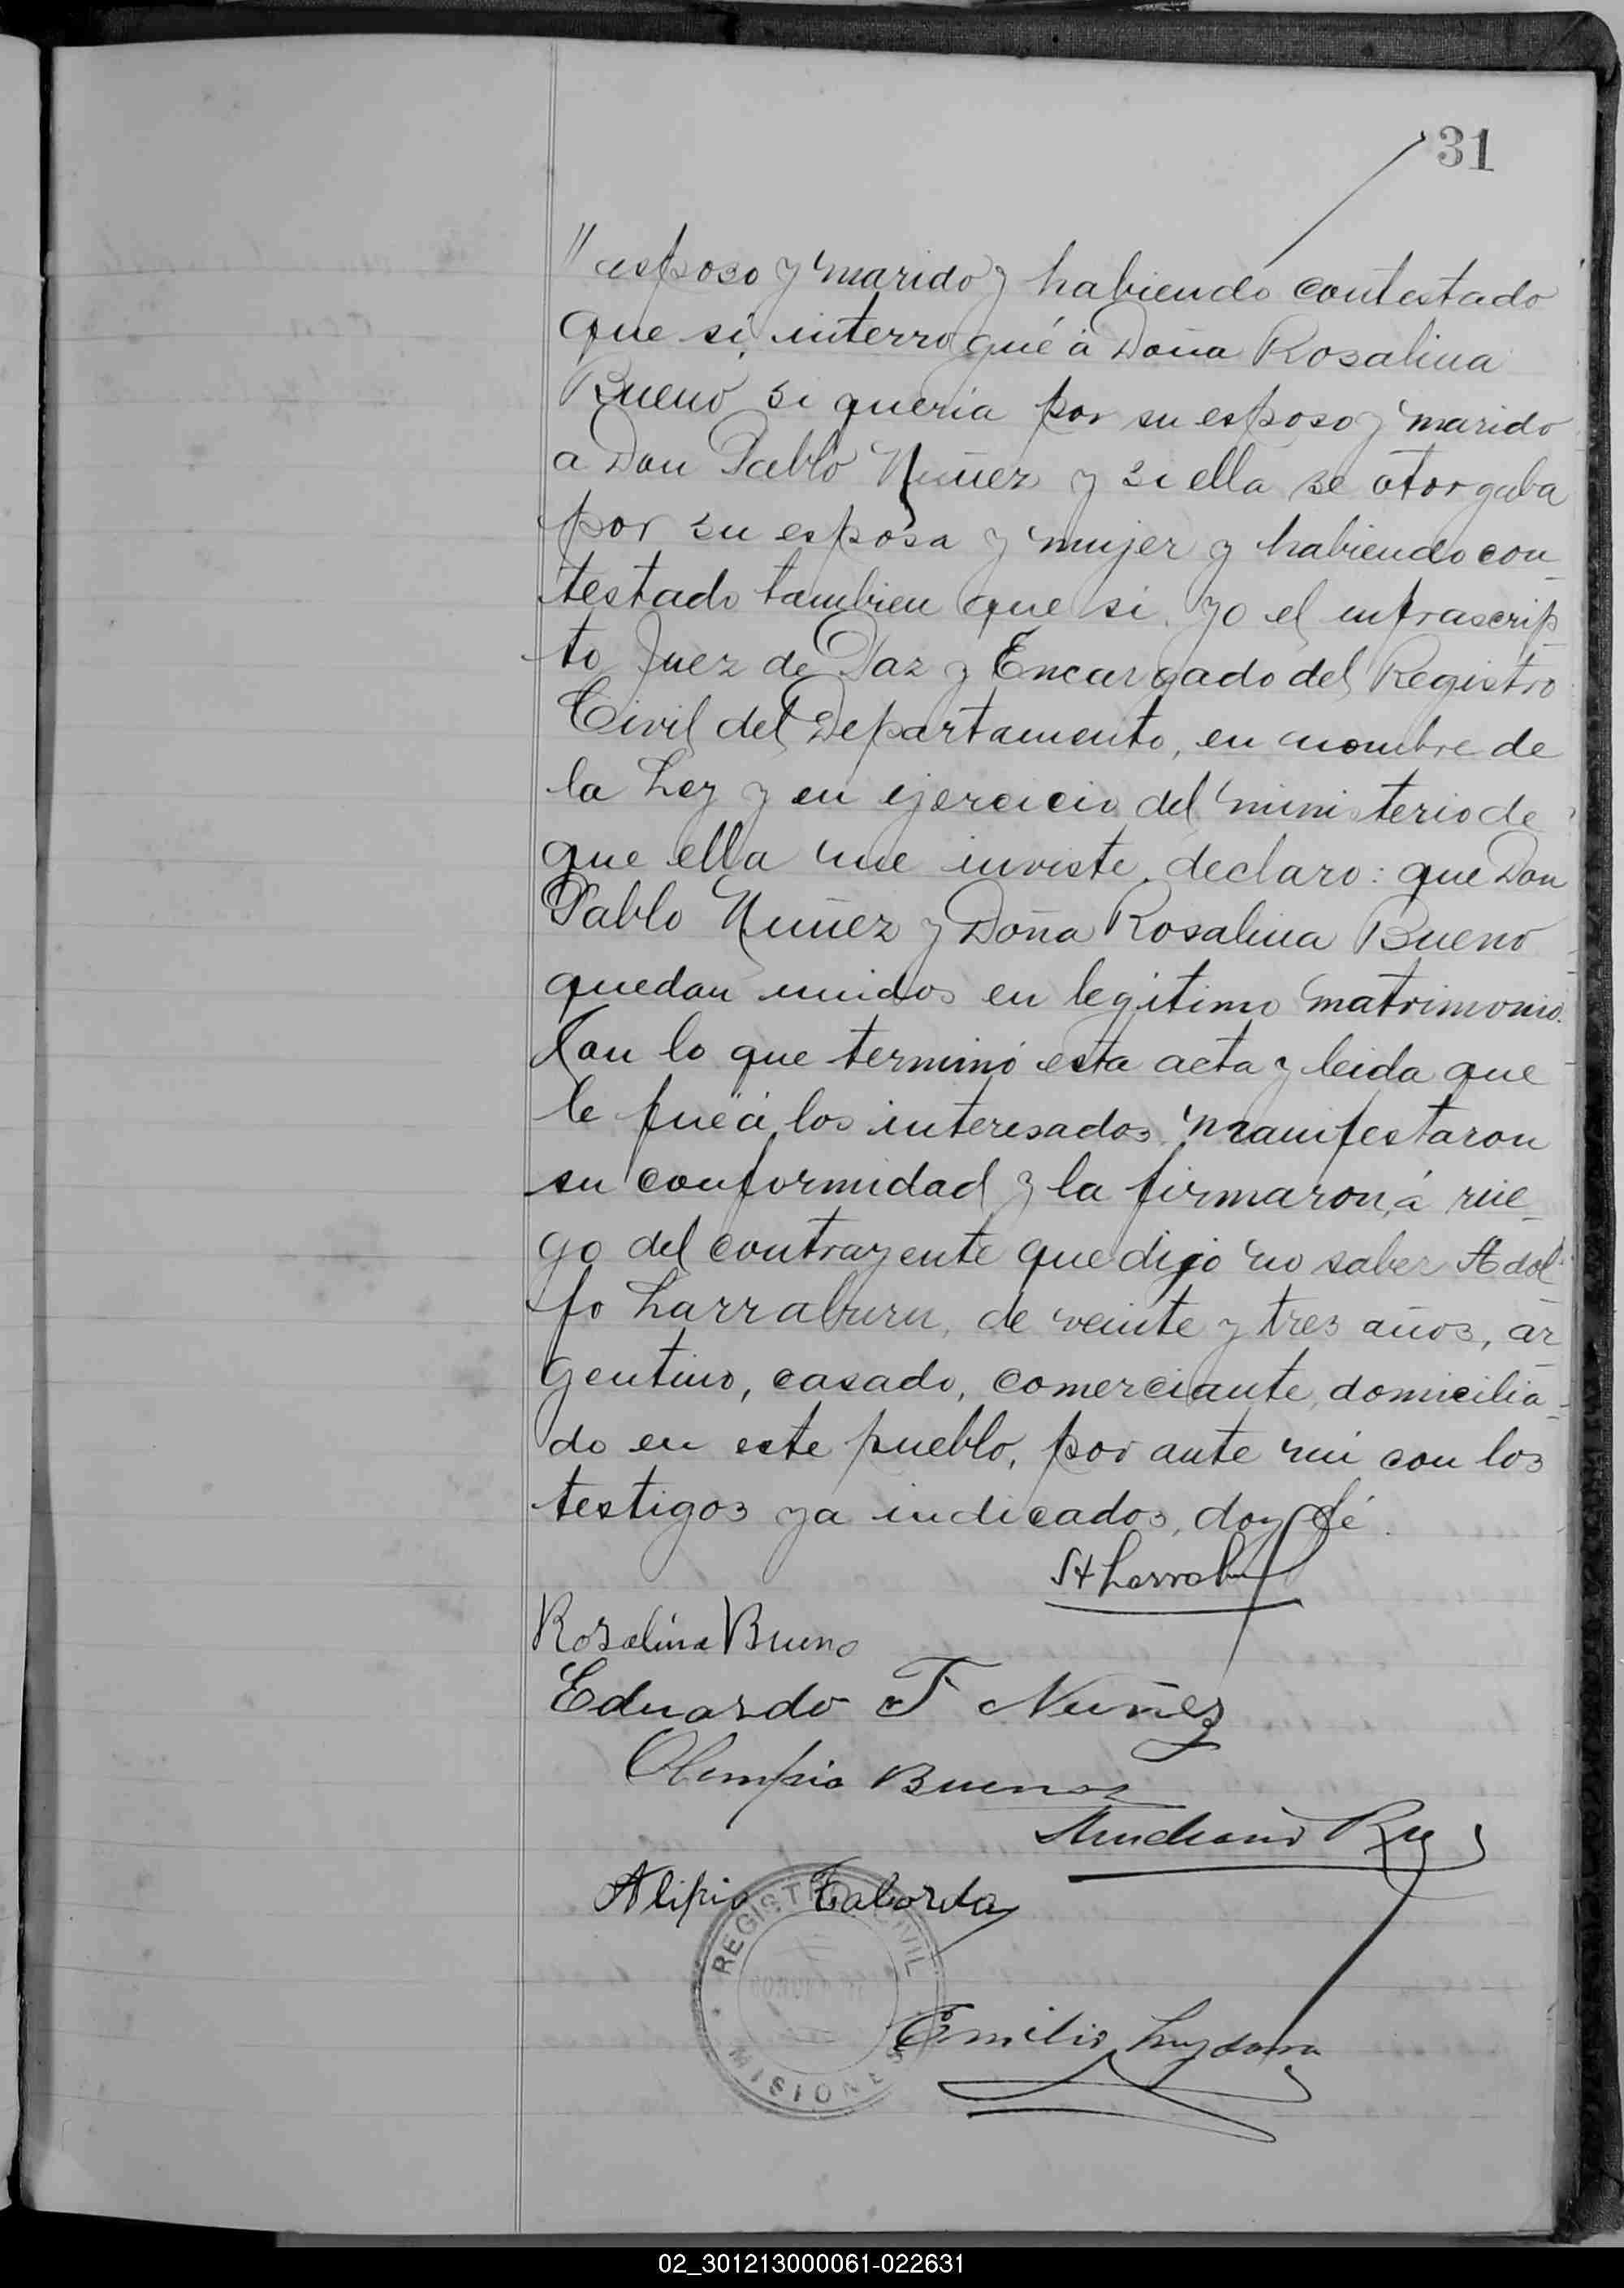 31
" esposo y marido y habiendo contestado
que si, interrogué á Doña Rosalina
Bueno si queria por su esposo y marido
a Don Pablo Nuñez y si ella se otorgaba
por su esposa y mujer y habiendo con_
testado tambien que si, yo el infrascrip_
to Juez de Paz y Encargado del Registro
Civil del Departamento, en nombre de
la Ley y en ejercicio del ministerio de
que ella me inviste, declaro: que Don
Pablo Nuñez y Doña Rosalina Bueno
quedan unidos en legitimo matrimonio.
Con lo que terminó esta acta y leida que
le fué á los interesados, manifestaron
su conformidad y la firmaron, á rue_
go del contrayente que dijo no saber Adol_
fo Larraburu, de veinte y tres años, ar_
gentino, casado, comerciante, domicilia_
do en este pueblo, por ante mi con los
testigos ya indicados, doy fé.
Rosalina Bueno
Eduardo T Nuñez
Olimpio Bueno
Alipio Taborda
REGISTRO CIVIL
MISIONES
Emilio
02_301213000061-022631